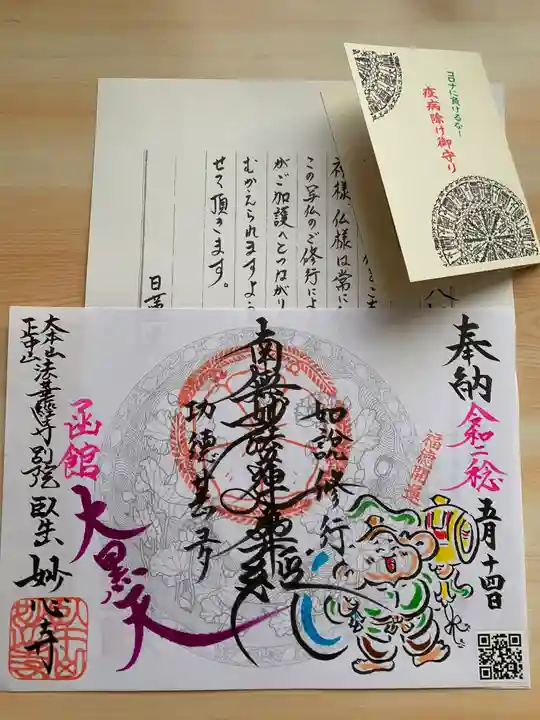 コロナに負けるな!
疫病除け御守り
神様、仏様は常に
この写仏のご修行によ
がご加護へとつながり
むかえられますよう
せて頂きます。
奉納
令和二稔
五月十四日
福徳開運
如説修行
南無妙法蓮華経
功徳甚多
函館
大黒天
大本山法華経寺別院
正中山
妙心寺